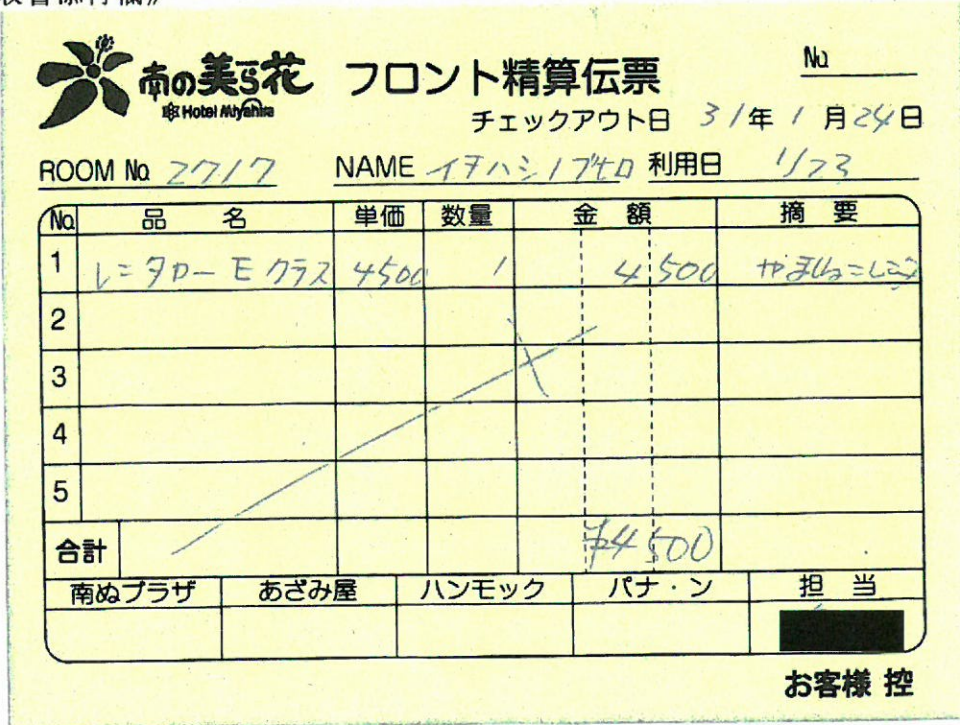 南の美ら花 フロント精算伝票 No.
Hotel Miyahira
チェックアウト日 31年1月24日
ROOM No. 2717 NAME イチハシノブヒロ 利用日 1/23
No. 品名 単価 数量 金額 摘要
1 レンタカー Eクラス 4500 1 4,500
2
3
4
5
合計 ¥4500
南ぬプラザ あざみ屋 ハンモック パナ・ン 担当
お客様 控